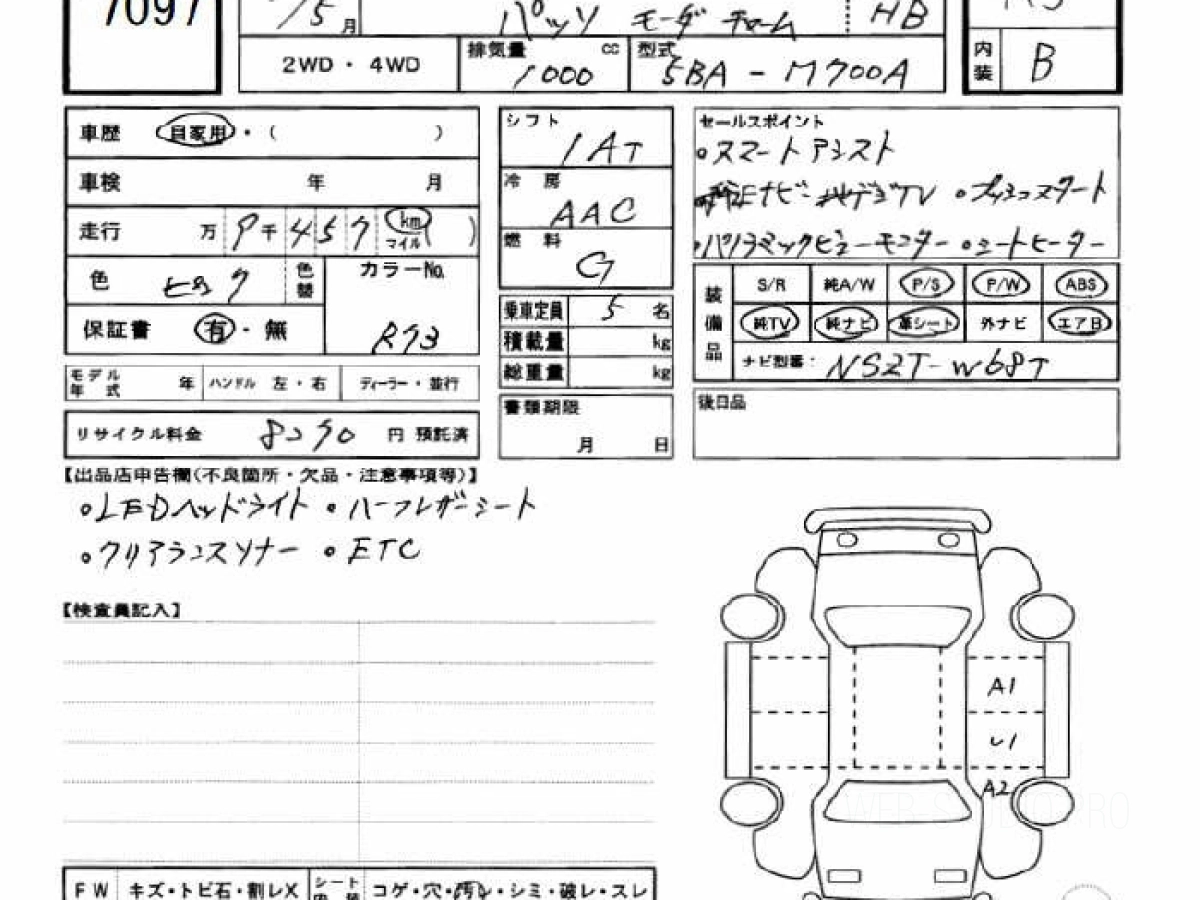 7097
5月 パッソ モーダ チャーム HB
2WD・4WD 排気量 1000 cc 型式 5BA-M700A 内装 B
車歴 自家用・( )
シフト 1AT
セールスポイント
・スマートアシスト
車検 年 月
冷房 AAC
純正ナビ・地デジTV ・プッシュスタート
走行 万 9千457 km マイル( )
・パノラミックビューモニター ・シートヒーター
燃料 G
色 ピンク 色替 カラーNo. R93
保証書 有・無
乗車定員 5名
積載量 kg
総重量 kg
装備品 S/R 純A/W P/S P/W ABS
純TV 純ナビ 革シート 外ナビ エアB
ナビ型番: NSZT-W68T
モデル年式 年 ハンドル 左・右 ディーラー・並行
書類期限 月 日
後日品
リサイクル料金 8290 円 預託済
【出品店申告欄(不良箇所・欠品・注意事項等)】
・LEDヘッドライト ・ハーフレザーシート
・クリアランスソナー ・ETC
【検査員記入】
A1
U1
A2
FW キズ・トビ石・割レX シート コゲ・穴・汚レ・シミ・破レ・スレ